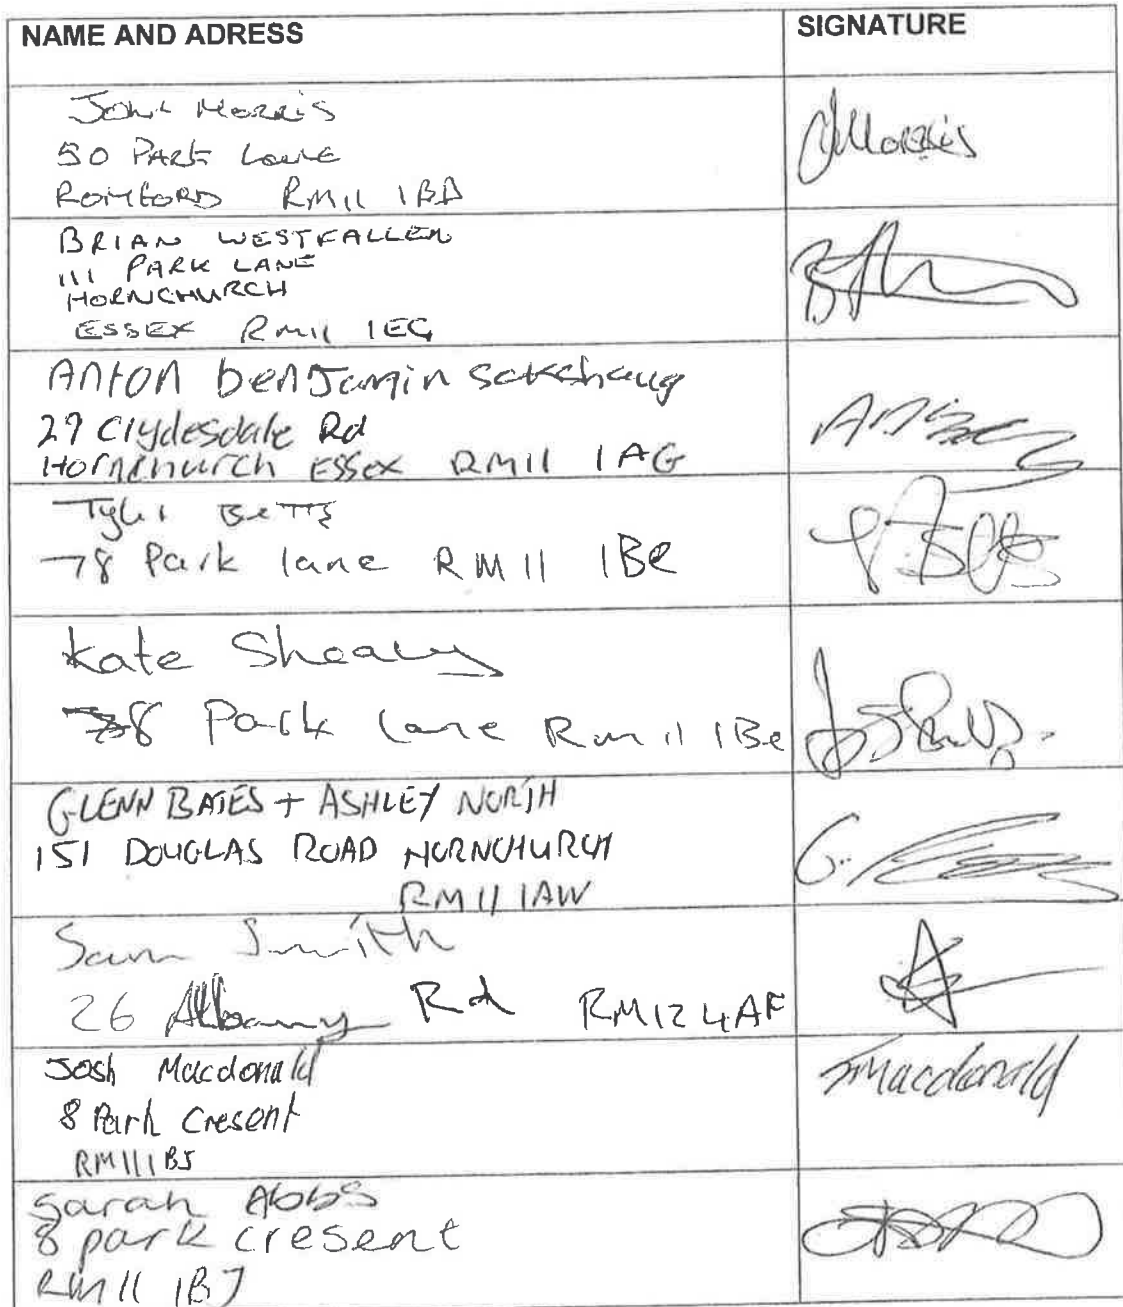 NAME AND ADRESS
SIGNATURE
John Morris
50 Park Lane
ROMFORD RM11 1BD
JMorris
BRIAN WESTFALLEN
111 PARK LANE
HORNCHURCH
ESSEX RM11 1EG
Anton benJamin
29 Clydesdale Rd
Hornchurch ESSEX RM11 1AG
Tyler BETTS
78 Park lane RM11 1Be
Kate Shealy
78 Park Lane Rm11 1Be
GLENN BATES + ASHLEY NORTH
151 DOUGLAS ROAD HORNCHURCH
RM11 1AW
G.
Sam Smith
26 Albany Rd RM12 4AF
Josh Macdonald
8 Park Cresent
RM11 1BJ
JMacdonald
Sarah Abbs
8 park cresent
RM11 1BJ